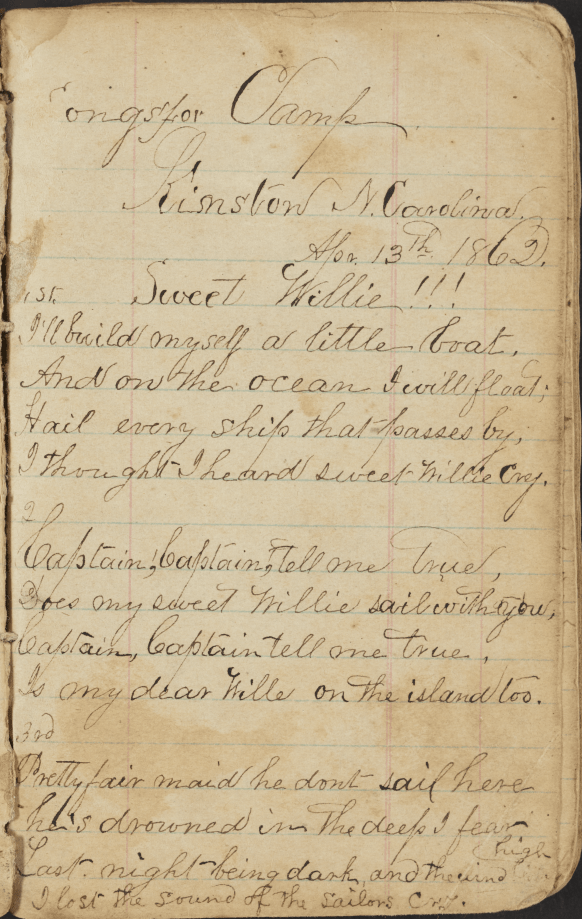 Songs for Camp
Kinston N. Carolina.
Apr. 13th. 1862.
1st. Sweet Willie !!!
I'll build myself a little boat,
And on the ocean I will float;
Hail every ship that passes by,
I thought I heard sweet Willie Cry.
2
Captain, Captain, tell me true,
Does my sweet Willie sail with you,
Captain, Captain tell me true,
Is my dear Wille on the island too.
3rd
Pretty fair maid he dont sail here
he's drowned in the deep I fear
high
Last night being dark, and the wind
I lost the sound of the sailors cry.